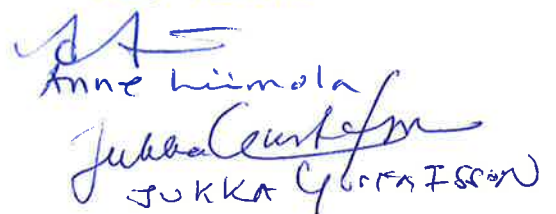 Anne Liimola
Jukka Gustafsson
JUKKA GUSTAFSSON